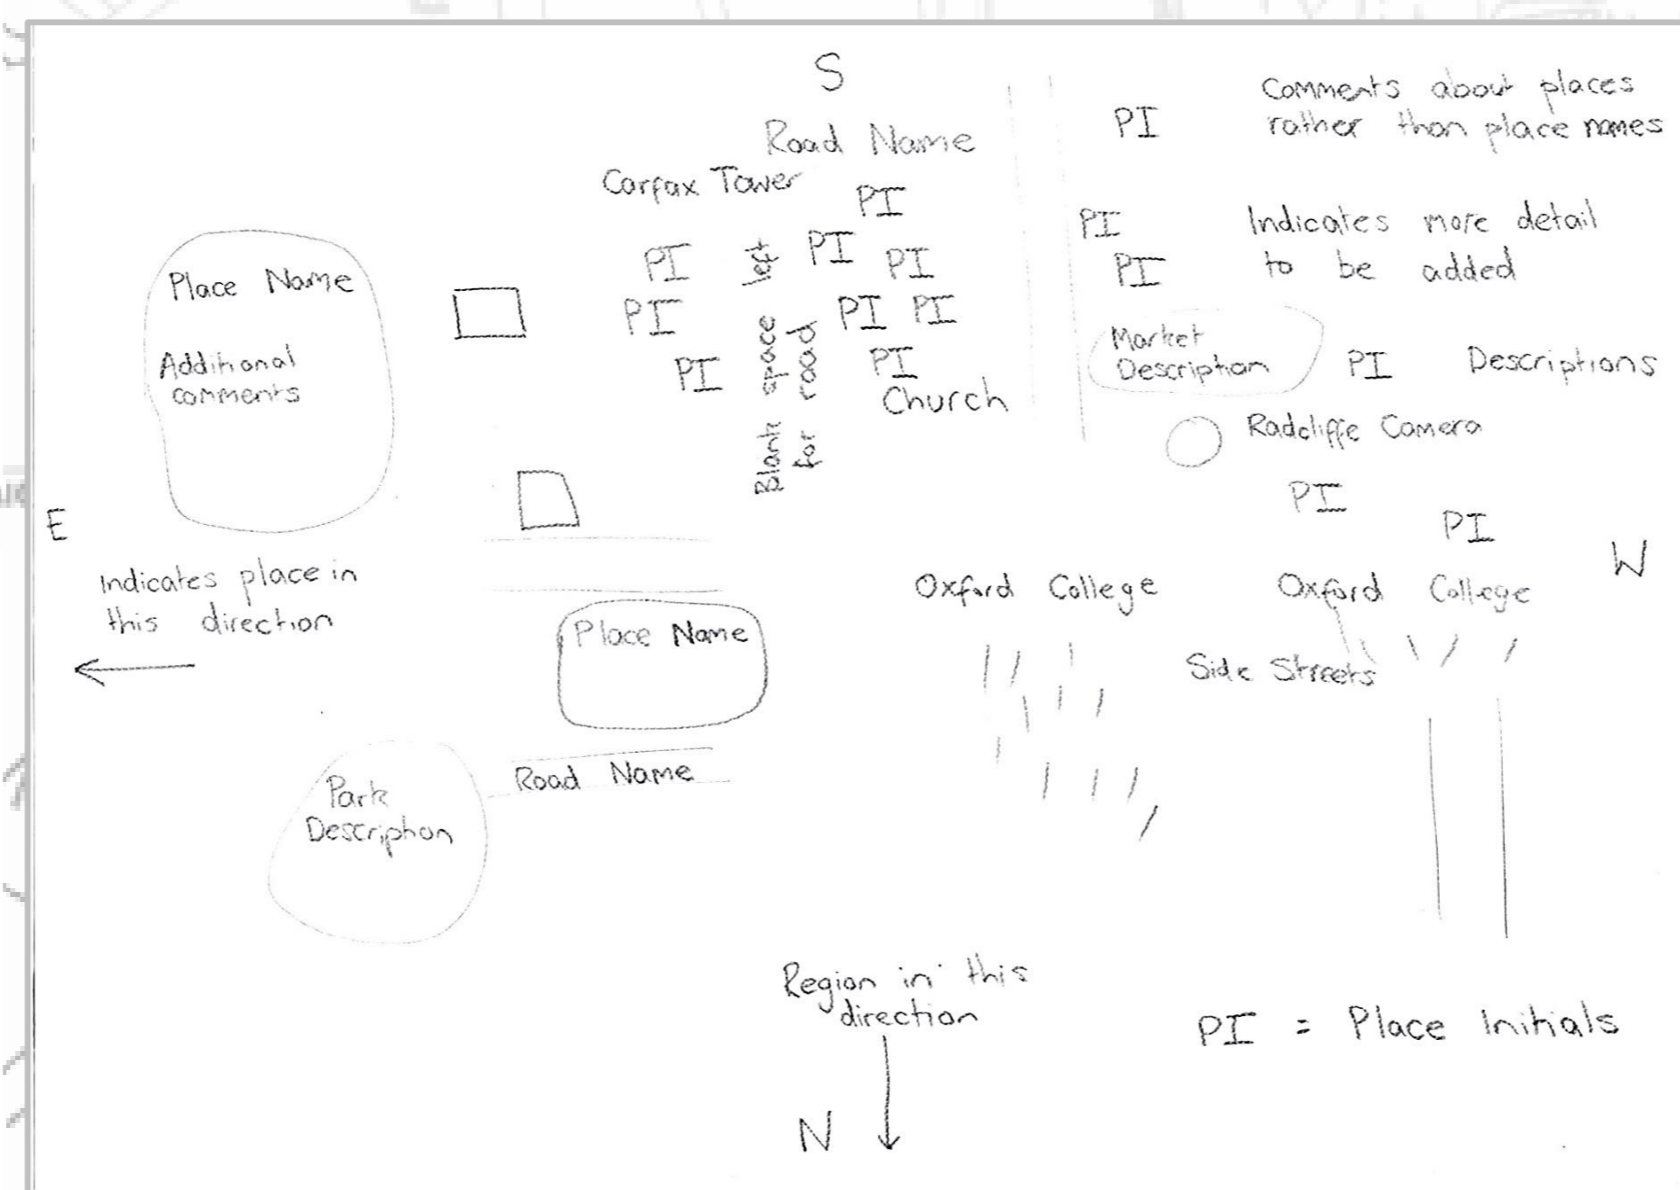 S
Road Name
Carfax Tower
PI
PI
PI
PI
PI
PI PI
PI
PI
Church
Blank space left
for road
PI
Comments about places
rather than place names
PI
PI
Indicates more detail
to be added
Market
Description
PI
Descriptions
Radcliffe Camera
PI
PI
Place Name
Additional
comments
E
Indicates place in
this direction
Place Name
Road Name
Park
Description
Oxford College
Oxford College
W
Side Streets
Region in this
direction
N
PI = Place Initials